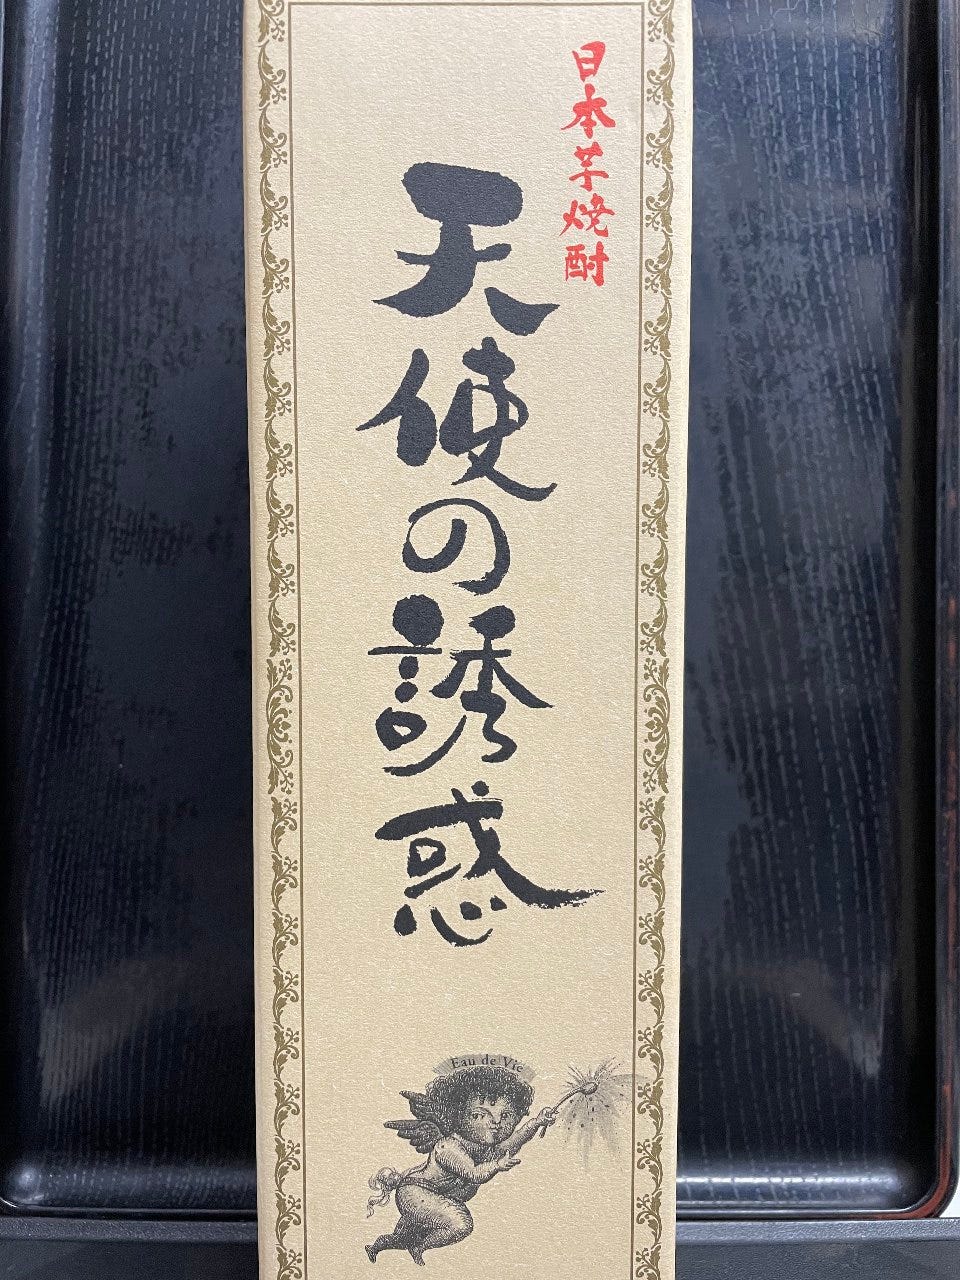 日本芋焼酎
天使の誘惑
Eau de Vie